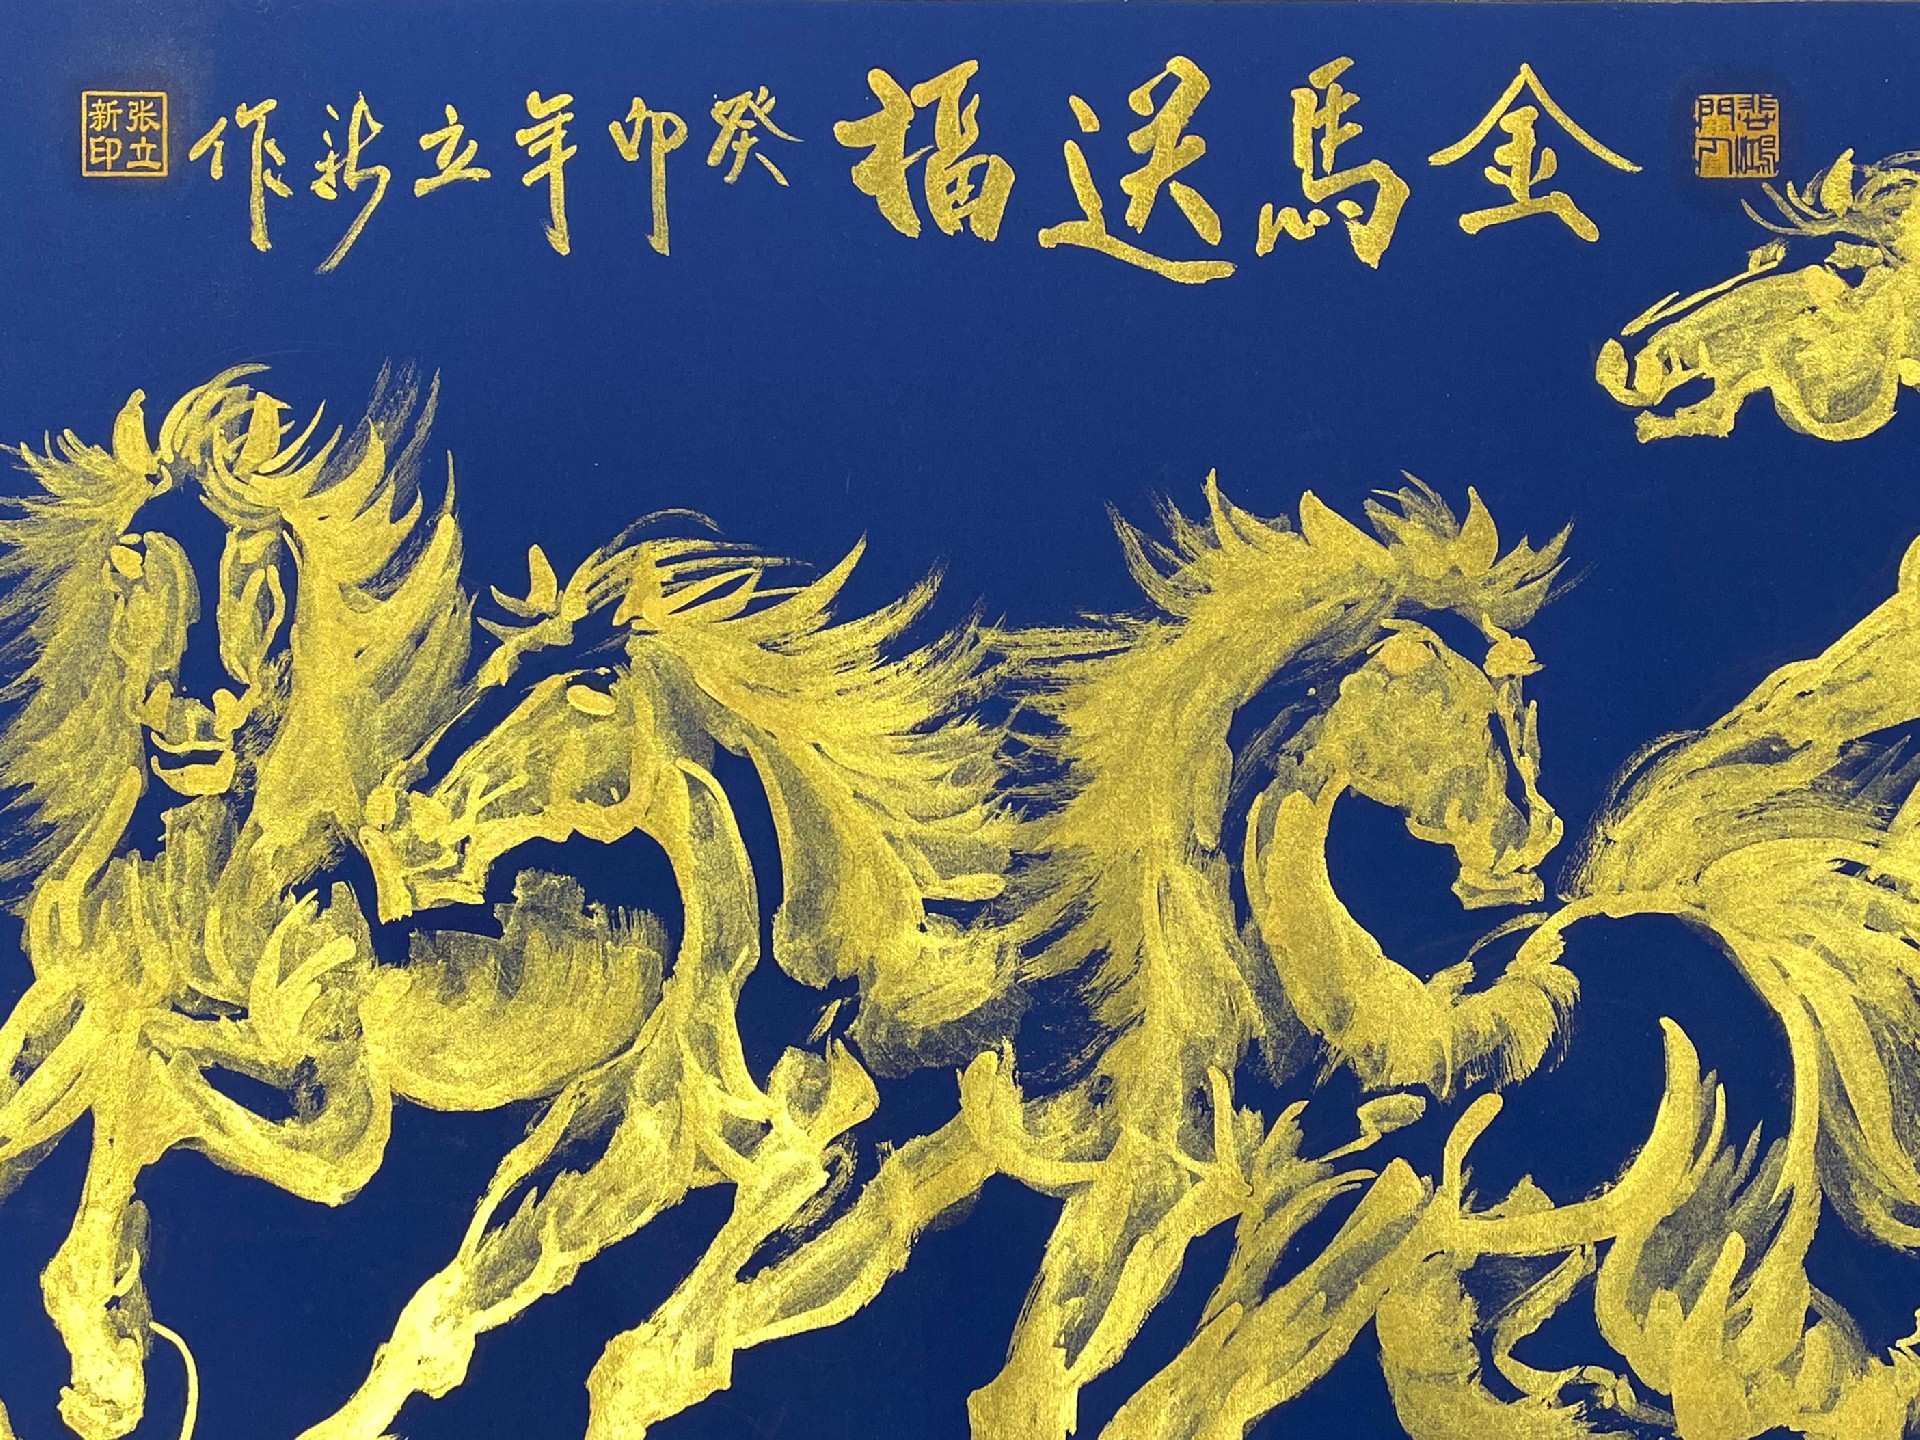 悲鴻門人
金馬送福癸卯年立新作
张立新印